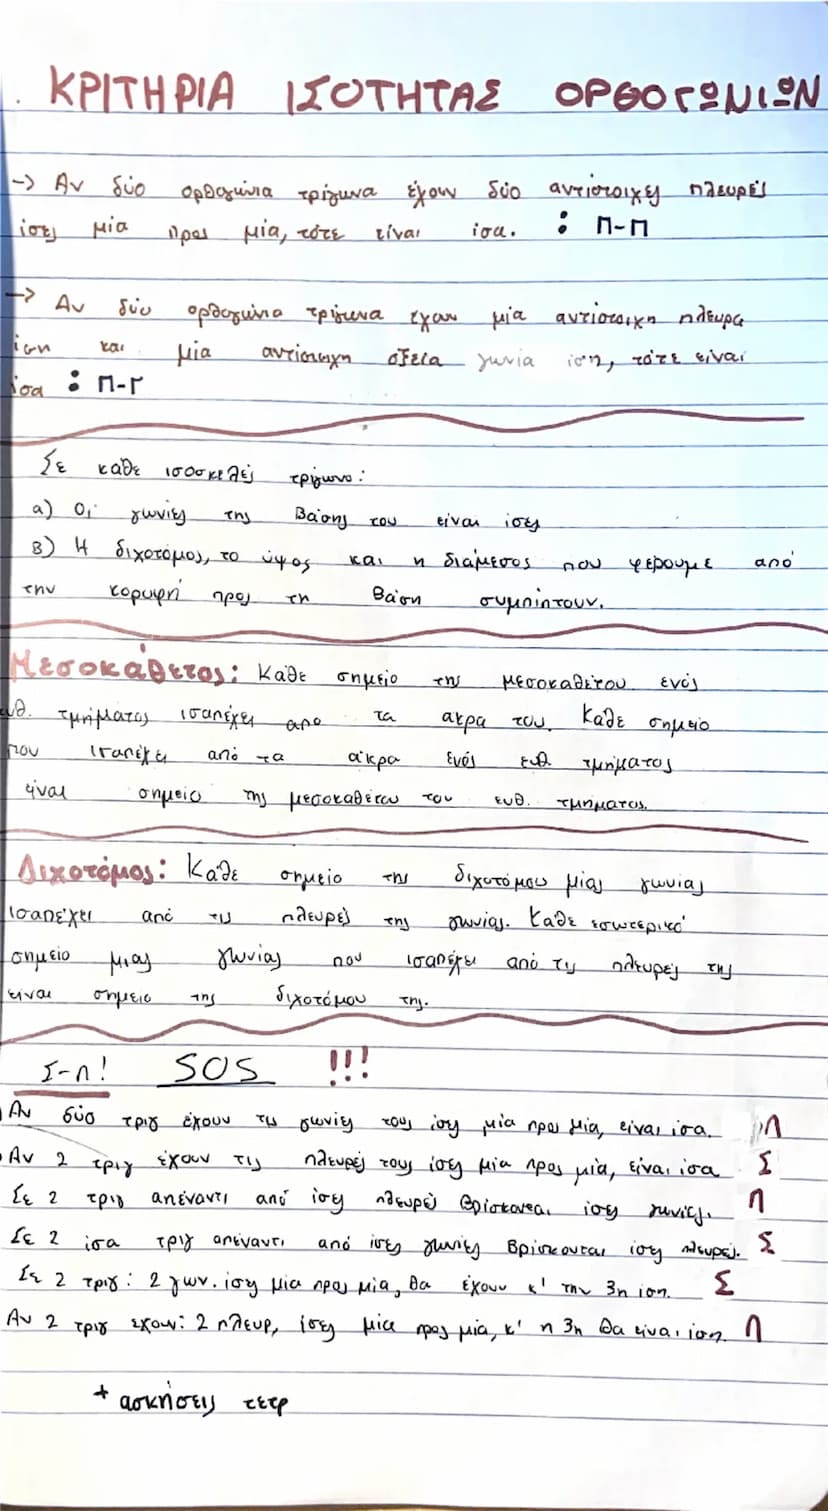 ΚΡΙΤΗΡΙΑ ΙΣΟΤΗΤΑΣ ΟΡΘΟΓΩΝΙΩΝ
-> Αν δύο ορθογώνια τρίγωνα έχουν δύο αντίστοιχες πλευρές
ίσες μία προς μία, τότε είναι ίσα. : Π-Π
-> Αν δύο ορθογώνια τρίγωνα έχουν μία αντίστοιχη πλευρα
ίση και μία αντίστοιχη οξεία γωνία ίση, τότε είναι
ίσα : Π-Γ
Σε κάθε ισοσκελές τρίγωνο:
α) Οι γωνίες της βάσης του είναι ίσες
β) Η διχοτόμος, το ύψος και η διάμεσος που φέρουμε από
την κορυφή προς τη βάση συμπίπτουν.
Μεσοκάθετος: Κάθε σημείο της μεσοκαθέτου ενός
ευθ. τμήματος ισαπέχει απο τα ακρα του. Κάθε σημείο
που ισαπέχει από τα άκρα ενός ευθ. τμήματος
είναι σημείο της μεσοκαθέτου του ευθ. τμήματος.
Διχοτόμος: Κάθε σημείο της διχοτόμου μίας γωνίας
ισαπέχει από τις πλευρές της γωνίας. Κάθε εσωτερικό
σημείο μιας γωνίας που ισαπέχει από τις πλευρές της
είναι σημείο της διχοτόμου της.
Σ-Λ! SOS !!!
Αν δύο τριγ έχουν τις γωνίες τους ίσες μία προς μία, είναι ίσα. Λ
Αν 2 τριγ έχουν τις πλευρές τους ίσες μία προς μία, είναι ίσα Σ
Σε 2 τριγ απέναντι από ίσες πλευρές βρίσκονται ίσες γωνίες. Λ
Σε 2 ίσα τριγ απέναντι από ίσες γωνίες βρίσκονται ίσες πλευρές. Σ
Σε 2 τριγ: 2 γων. ίσες μία προς μία, θα έχουν κ' την 3η ίση. Σ
Αν 2 τριγ έχουν: 2 πλευρ, ίσες μία προς μία, κ' η 3η θα είναι ίση. Λ
+ ασκήσεις τετρ